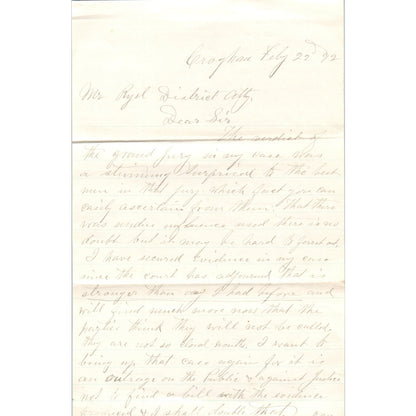 Croghan Feby 22d 92
Mr Ryel District Atty,
Dear Sir
The verdict of
the grand jury in my case was
a stunning surprised to the best
men in that jury which fact you can
easily ascertain from them. That there
was undue influence used there is no
doubt but it may be hard to
I have secured Evidence in my case
since the court has adjourned that is
stronger than any I had before and
will find much more now that the
parties think they will not be called,
They are not so closed mouth. I want to
bring up that case again for it is
an outrage on the public & against justice
not to find a bill with the evidence
produced & I shall double that